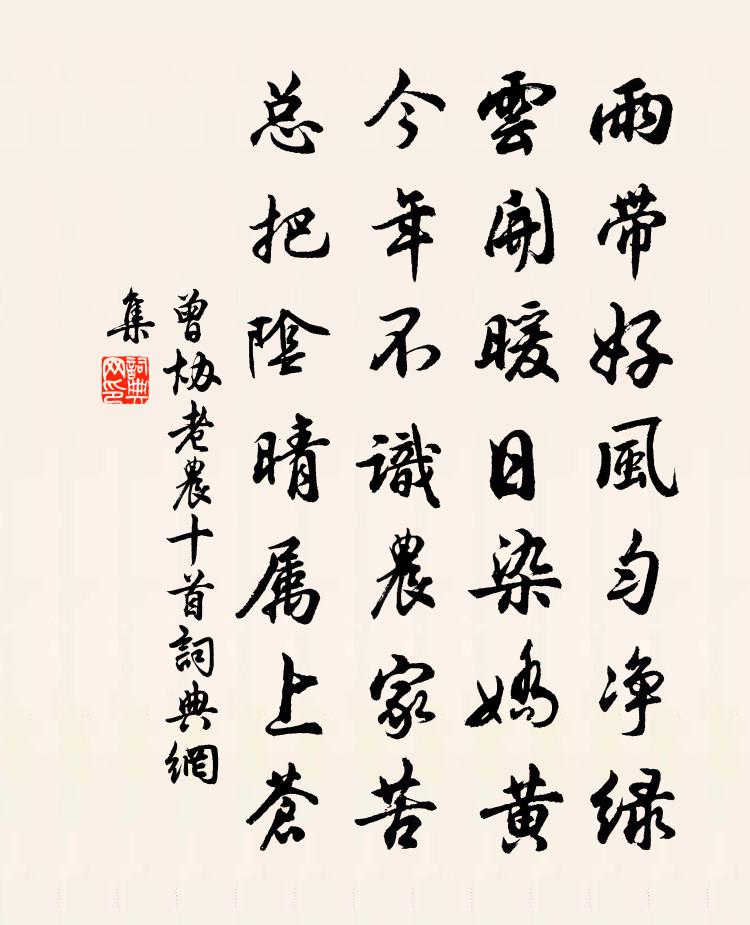 雨帶好風勻净緑
雲開暖日染嬌黄
今年不識農家苦
总把陰晴属上蒼
曾協老農十首詞典網
集
詞典
网印